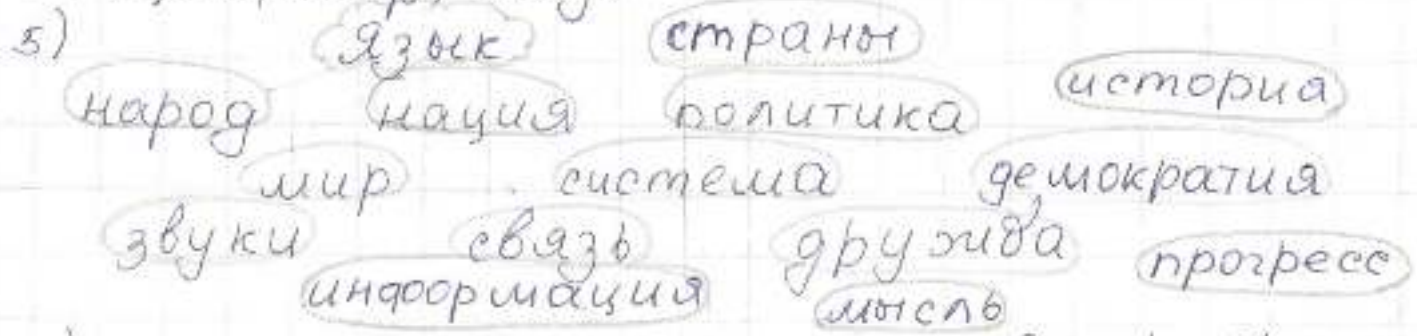 5) язык страны
история
народ нация политика
мир система демократия
звуки связь дружба прогресс
информация мысль